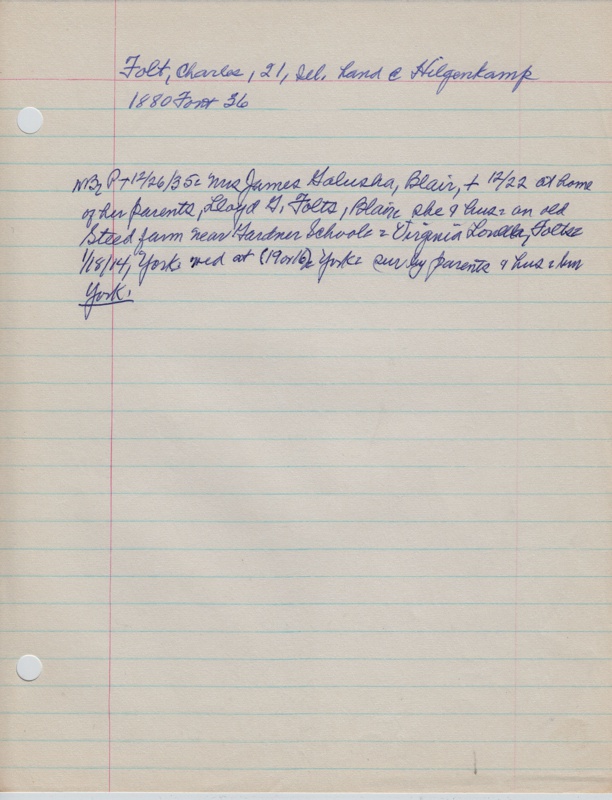 Folt, Charles, 21, Del. hand @ Hilgenkamp
1880 Font 36
P + 12/26/35 = Mrs James Galusha, Blair, + 12/22 at home
of her parents, Lloyd G. Folts, Blair, she & hus = on old
Steed farm near Gardner School = Virginia Lorella, Folts =
1/18/14, York = wed at (19 or 16) = York = sur by parents & hus = bur
York.